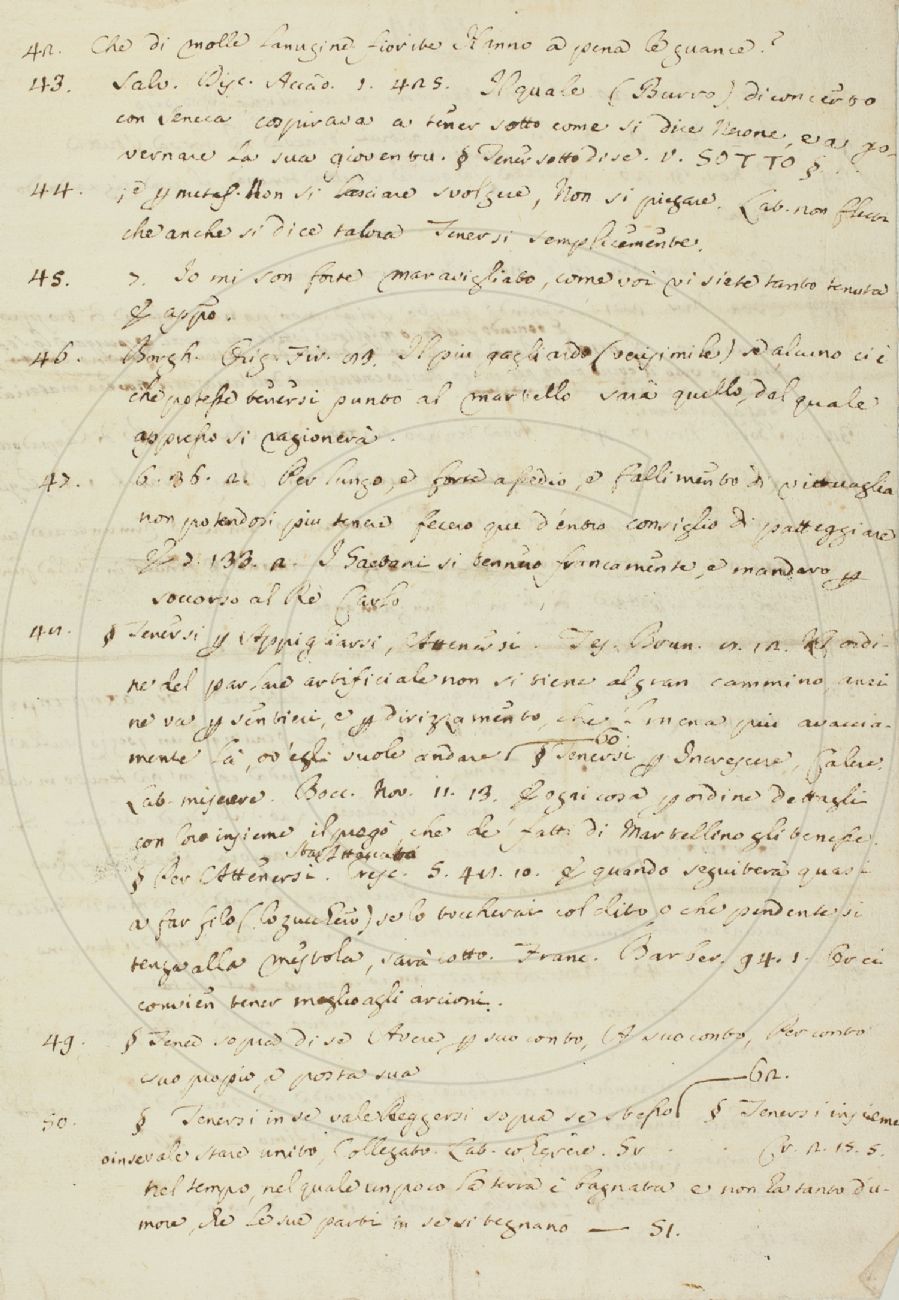 42. Che di molle lanugine fiorite Hanno a pena le guance.
43. Salv. Disc. Accad. 1. 425. Il quale (Burro) di concerto
con Seneca cospirava a tener sotto come si dice Nerone, e a go-
vernare la sua gioventu. § Tener sotto di se. V. SOTTO §. . .
44. metaf. Non si lasciare svolgere, Non si piegare. Lat. non flecti
che anche si dice talora Tenersi semplicemente.
45. 7. Io mi son forte maravigliato, come voi vi siete tanto tenuta
& appo.
46. Borgh. Orig. Fir. Il piu gagliardo (verisimile) se alcuno ci è
che potesse tenersi punto al martello sarà quello, del quale
appresso si ragionerà.
47. 6. 36. 2. Per lungo, e forte assedio, e fallimento di vittuaglia
non potendosi piu tenere fecero que d'entro consiglio di patteggiare
& 7. 133. 2. I Gaetani si tennero francamente, e mandaro p
soccorso al Re Carlo
§ Tenersi p Appigliarsi, Attenersi. Tes. Brun. 8. 12. ordi-
ne del parlare artificiale non si tiene al gran cammino, anzi
ne va p sentieri, e p dirizzamento, che 'l mena piu avaccia-
mente là, ov' egli suole andare 60 § Tenersi p Increscere, Calere.
Lat. miserere. Bocc. Nov. 11. 13. & ogni cosa p ordine dettagli
con loro insieme il pregò, che de' fatti di Martellino gli tenesse.
Star Attaccato
§ Per Attenersi. Cresc. 5. 48. 10. & quando seguiterà quasi
a far filo (lo zucchero) se lo toccherai col dito, o che pendente si
tenga alla mestola, sarà cotto. Franc. Barber. 94. 1. Or ci
convien tener meglio agli arcioni.
49. § Tener sopra di se Avere p suo conto, A suo conto, Per conto
suo propio, e posta sua
50. § Tenersi in se vale Reggersi sopra se stesso 62. § Tenersi insieme
o in se vale stare unito, Collegato. Lat. cohærere. Cr. 2. 15. 5.
Nel tempo, nel quale un poco la terra è bagnata e non ha tanto d'u-
more, che le sue parti in se si tegnano — 51.